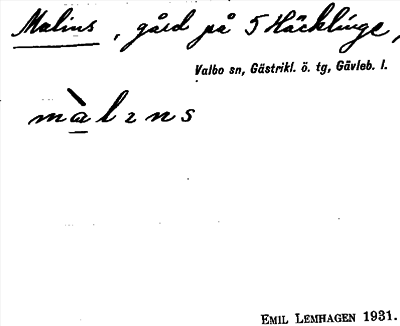 Malins, gård på 5 Häcklinge,
Valbo sn, Gästrikl. ö. tg, Gävleb. l.
màlɪns
EMIL LEMHAGEN 1931.